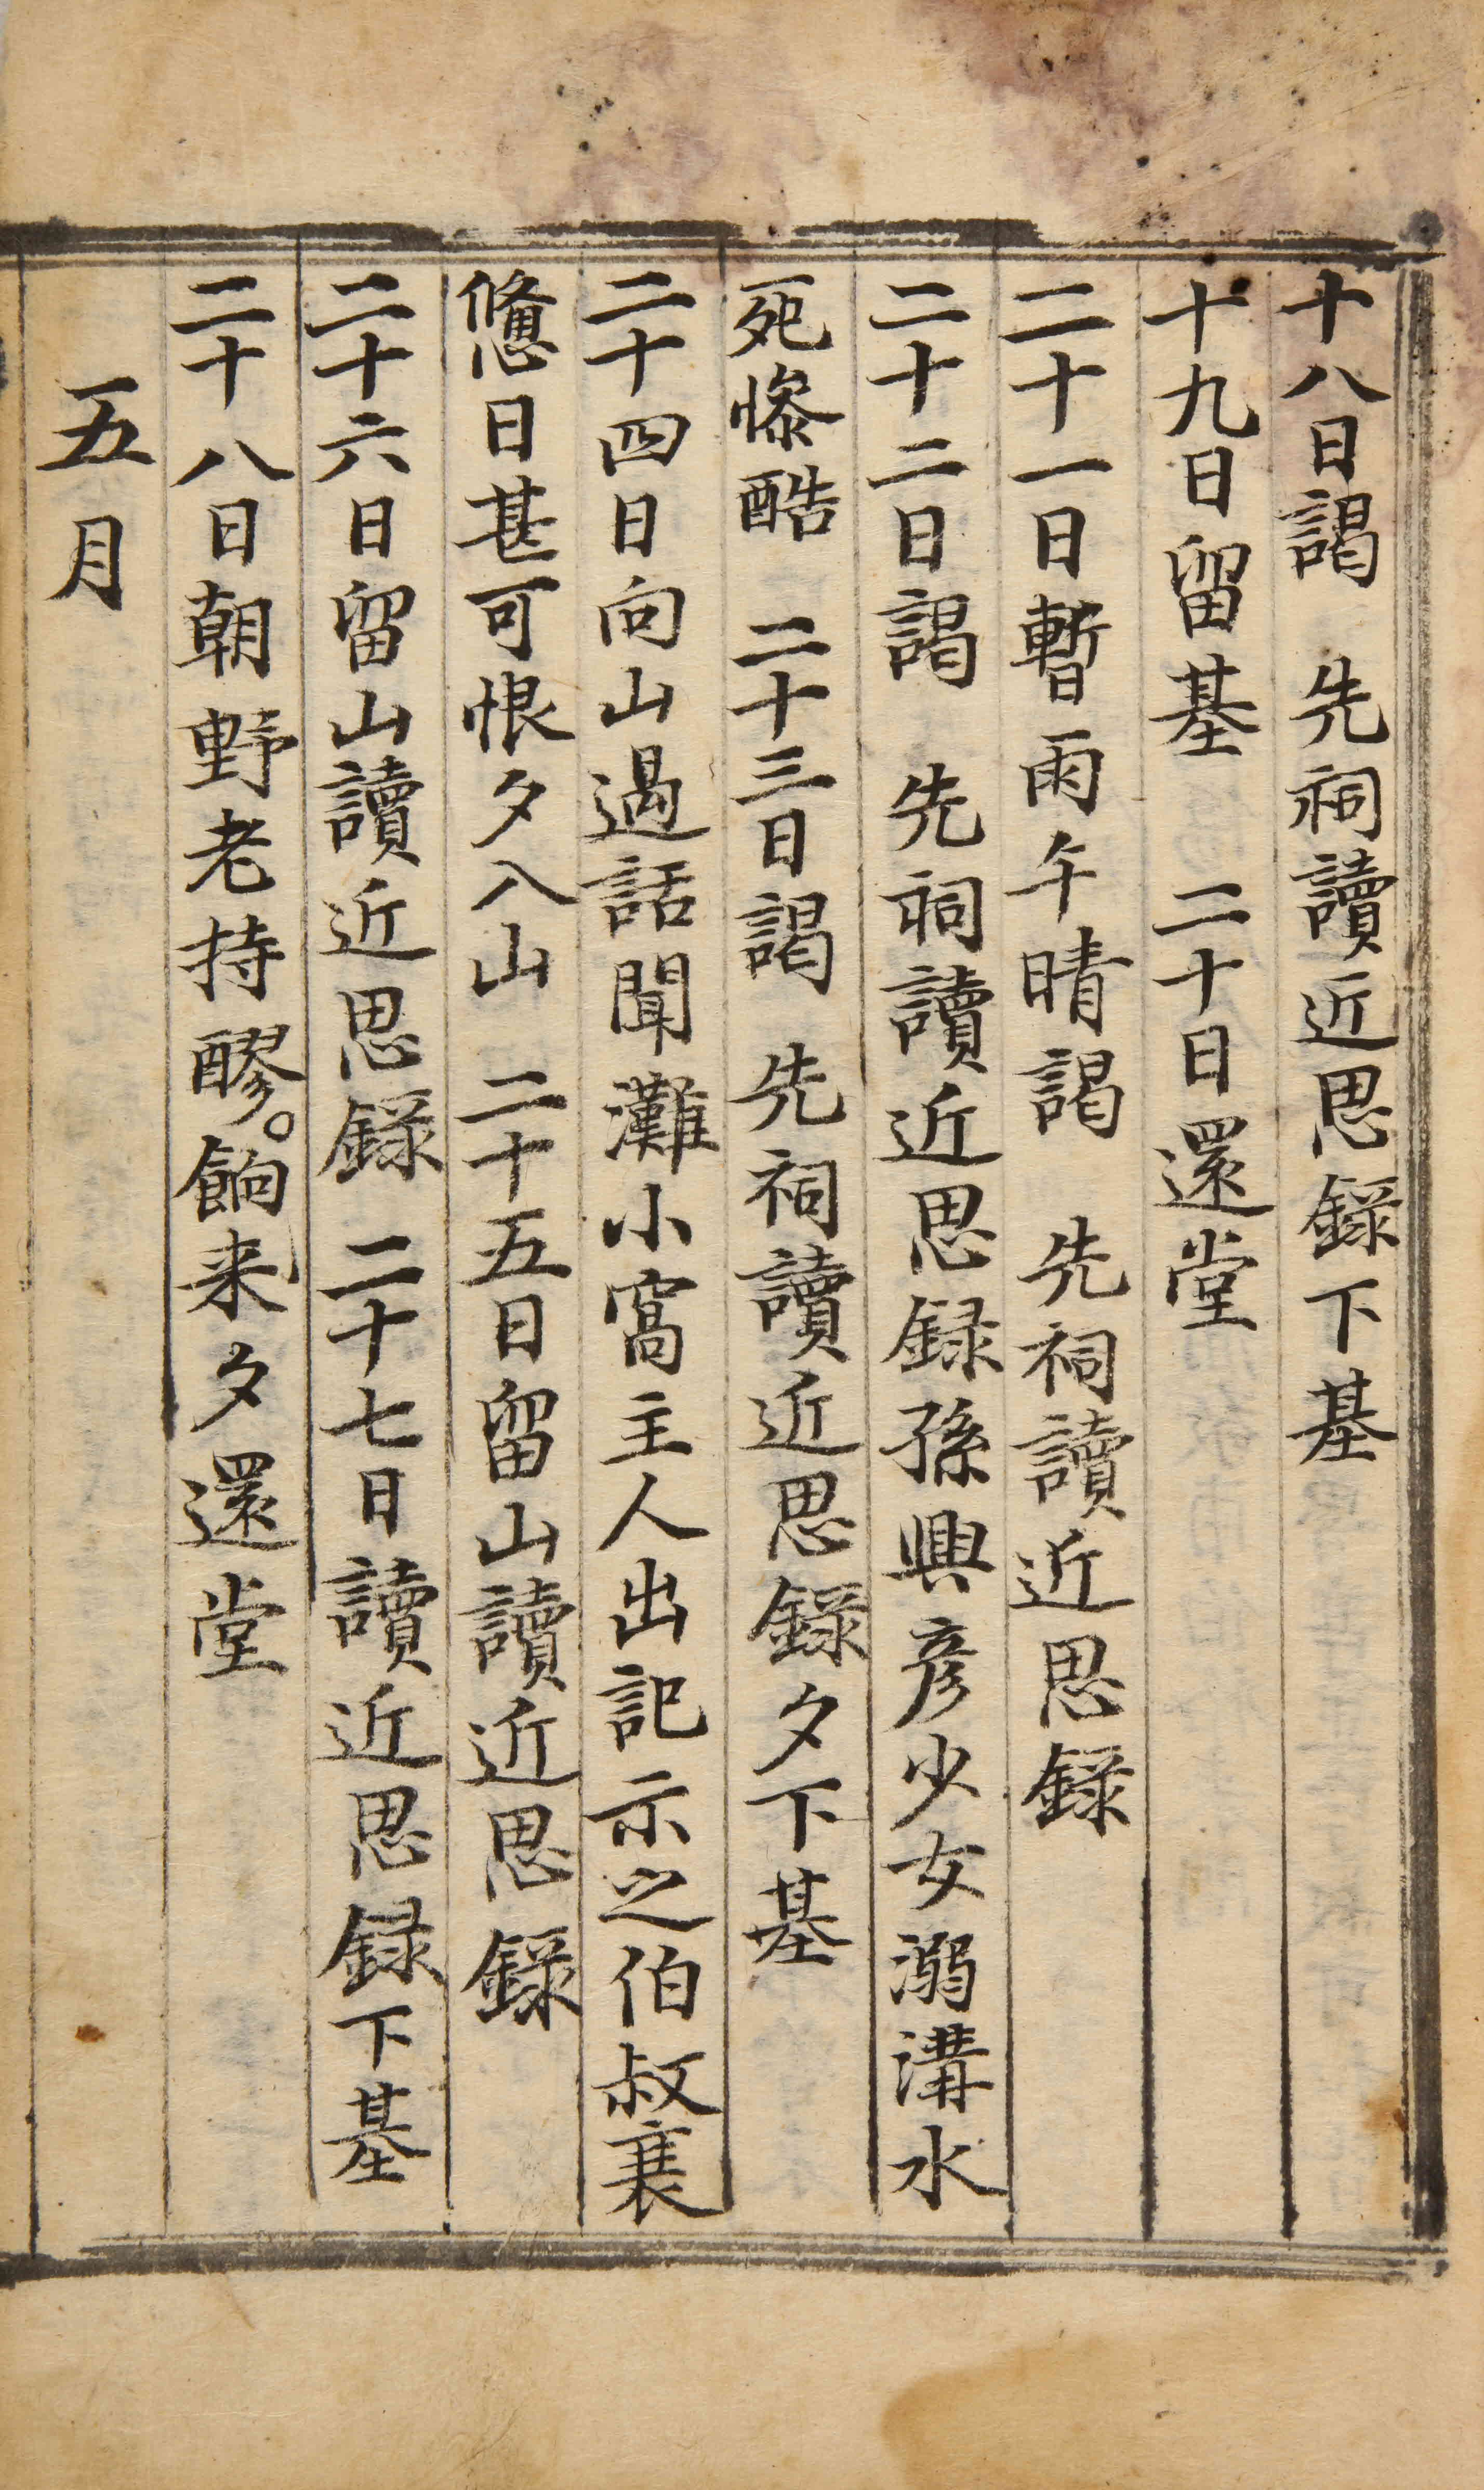 十八日謁　先祠讀近思錄下基
十九日留基　二十日還堂
二十一日暫雨午晴謁　先祠讀近思錄
二十二日謁　先祠讀近思録孫興彦少女溺溝水
死慘酷　二十三日謁　先祠讀近思錄夕下基
二十四日向山過話聞灘小窩主人出記示之伯叔襄
憊日甚可恨夕入山　二十五日留山讀近思錄
二十六日留山讀近思録　二十七日讀近思録下基
二十八日朝野老持醪。餉来夕還堂
五月